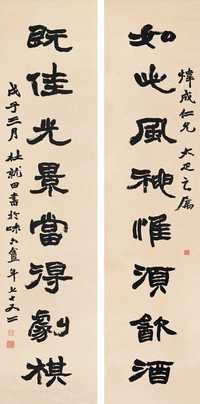 煒成仁兄大疋之屬
如此風神惟須飲酒
既佳光景當得劇棋
戊子二月杜就田書於味六盦年七十又二